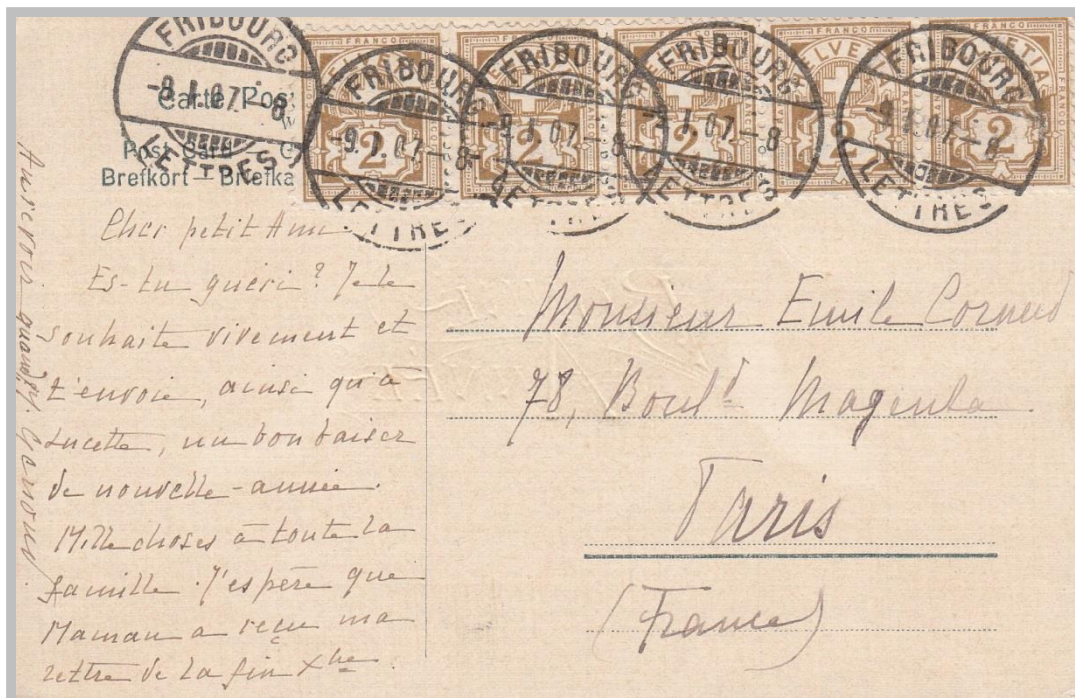 FRIBOURG
-9.I.07.-8
LETTRES
FRIBOURG
-9.I.07.-8
LETTRES
FRIBOURG
-9.I.07.-8
LETTRES
FRIBOURG
I.07.-8
LETTRES
FRIBOURG
-9.I.07.-8
LETTRES
FRANCO
FRANCO
FRANCO
FRANCO
FRANCO
HELVETIA
2
2
2
2
2
Carte Pos
Post Card C
Brefkort — Briefka
Cher petit Ami
Es-tu guéri? Je le
souhaite vivement et
t'envoie, ainsi qu'à
Lucette, un bon baiser
de nouvelle-année.
Mille choses à toute la
famille. J'espère que
Maman a reçu ma
lettre de la fin Xbre.
Au revoir
Monsieur Emile Cornud
78, Boul.d Magenta
Paris
(France)